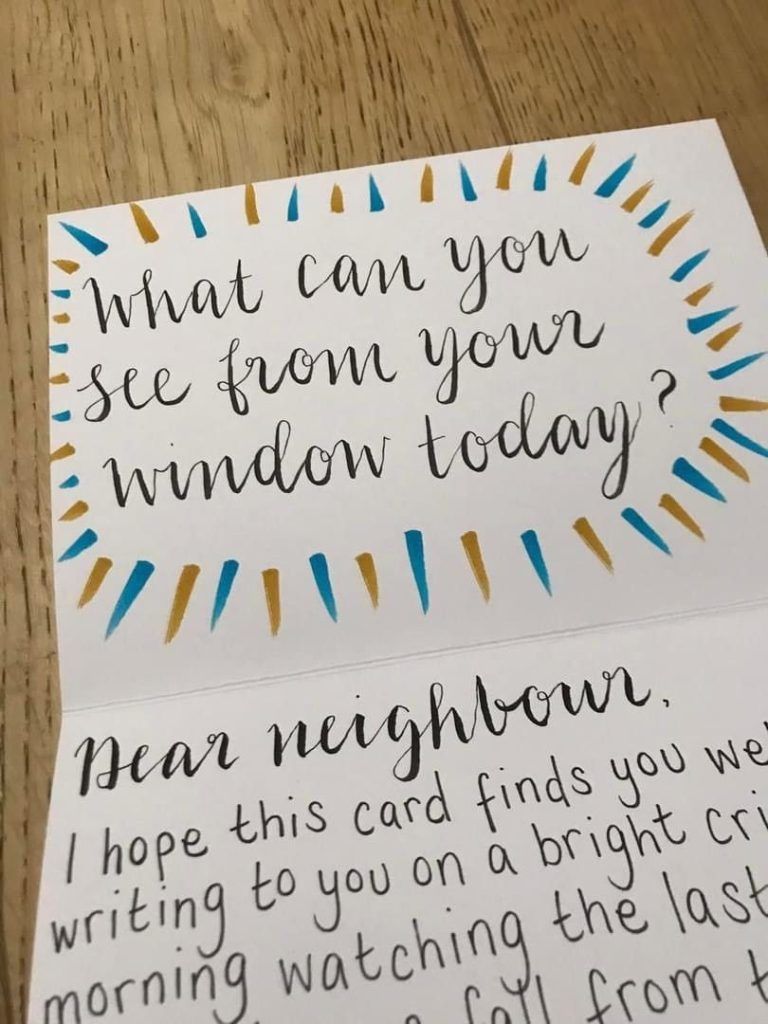 What can you
see from your
window today?
Dear neighbour,
I hope this card finds you
writing to you on a bright
morning watching the last
fall from